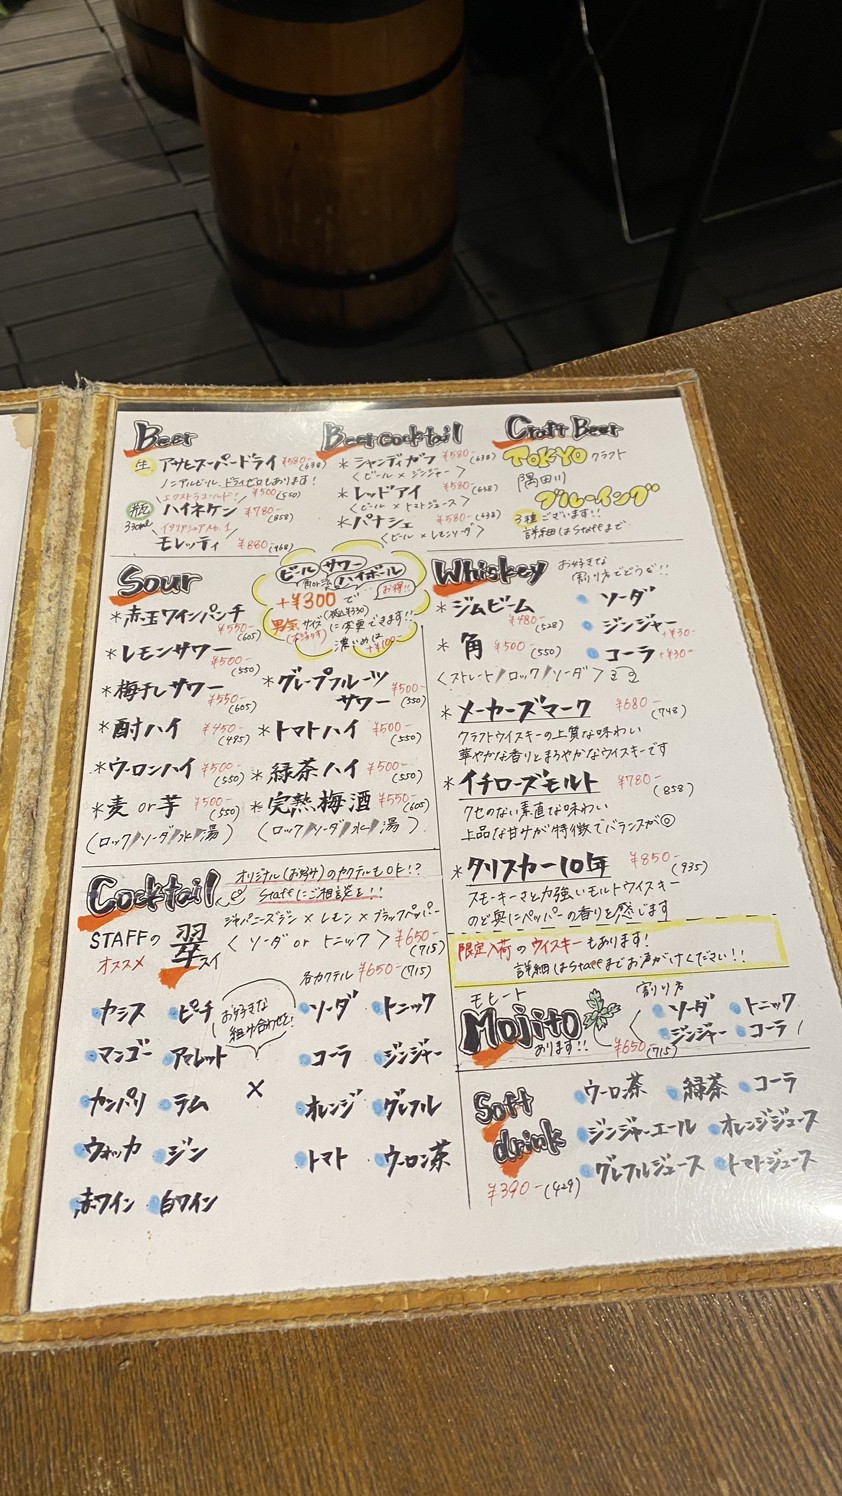 Beer
生 アサヒスーパードライ ¥580-(638)
ノンアルビール、ドライゼロもあります!
エクストラコールド! ¥500(550)
瓶 ハイネケン ¥780-(858)
330ml
モレッティ ¥880-(968)
Beer cocktail
*シャンディガフ ¥580-(638)
〈ビール×ジンジャー〉
*レッドアイ ¥580-(638)
〈ビール×トマトジュース〉
*パナシェ ¥580-(638)
〈ビール×レモンソーダ〉
Craft Beer
TOKYO クラフト
隅田川
ブルーイング
3種ございます!!
詳細はStaffまで
Sour
ビール サワー
ハイボール
お得!!
+¥300で
(税込¥330)
男気サイズに変更できます!!
濃いめは
+¥100-
*赤玉ワインパンチ
¥550-(605)
*レモンサワー
¥500-(550)
*梅干しサワー
¥550-(605)
*グレープフルーツ
サワー ¥500-(550)
*酎ハイ ¥450-(495)
*トマトハイ ¥500-(550)
*ウーロンハイ ¥500-(550)
*緑茶ハイ ¥500-(550)
*麦or芋 ¥500-(550)
(ロック/ソーダ/水/湯)
*完熟梅酒 ¥550-(605)
(ロック/ソーダ/水/湯)
Whiskey
お好きな
割り方でどうぞ!!
*ジムビーム
¥480-(528)
*角 ¥500-(550)
ソーダ
ジンジャー +¥30-
コーラ +¥30-
〈ストレート/ロック/ソーダ〉
*メーカーズマーク ¥680-(748)
クラフトウイスキーの上質な味わい
華やかな香りとまろやかなウイスキーです
*イチローズモルト ¥780-(858)
クセのない素直な味わい
上品な甘さが特徴でバランスが◎
*タリスカー10年 ¥850-(935)
スモーキーさと力強いモルトウイスキー
のど奥にペッパーの香りを感じます
限定入荷のウイスキーもあります!
詳細はStaffまでお声がけください!!
Cocktail
オリジナル(お好み)のカクテルもOK!?
Staffにご相談を!!
STAFFの
オススメ
翠
スイ
ジャパニーズジン×レモン×ブラックペッパー
〈ソーダ or トニック〉 ¥650-(715)
各カクテル ¥650-(715)
カシス ピーチ
マンゴー アマレット
カンパリ ラム
ウォッカ ジン
赤ワイン 白ワイン
お好きな
組み合わせを!
×
ソーダ トニック
コーラ ジンジャー
オレンジ グレフル
トマト ウーロン茶
モヒート
Mojito
あります!!
¥650-(715)
割り方
ソーダ トニック
ジンジャー コーラ
Soft
drink
¥390-(429)
ウーロ茶 緑茶 コーラ
ジンジャーエール オレンジジュース
グレフルジュース トマトジュース